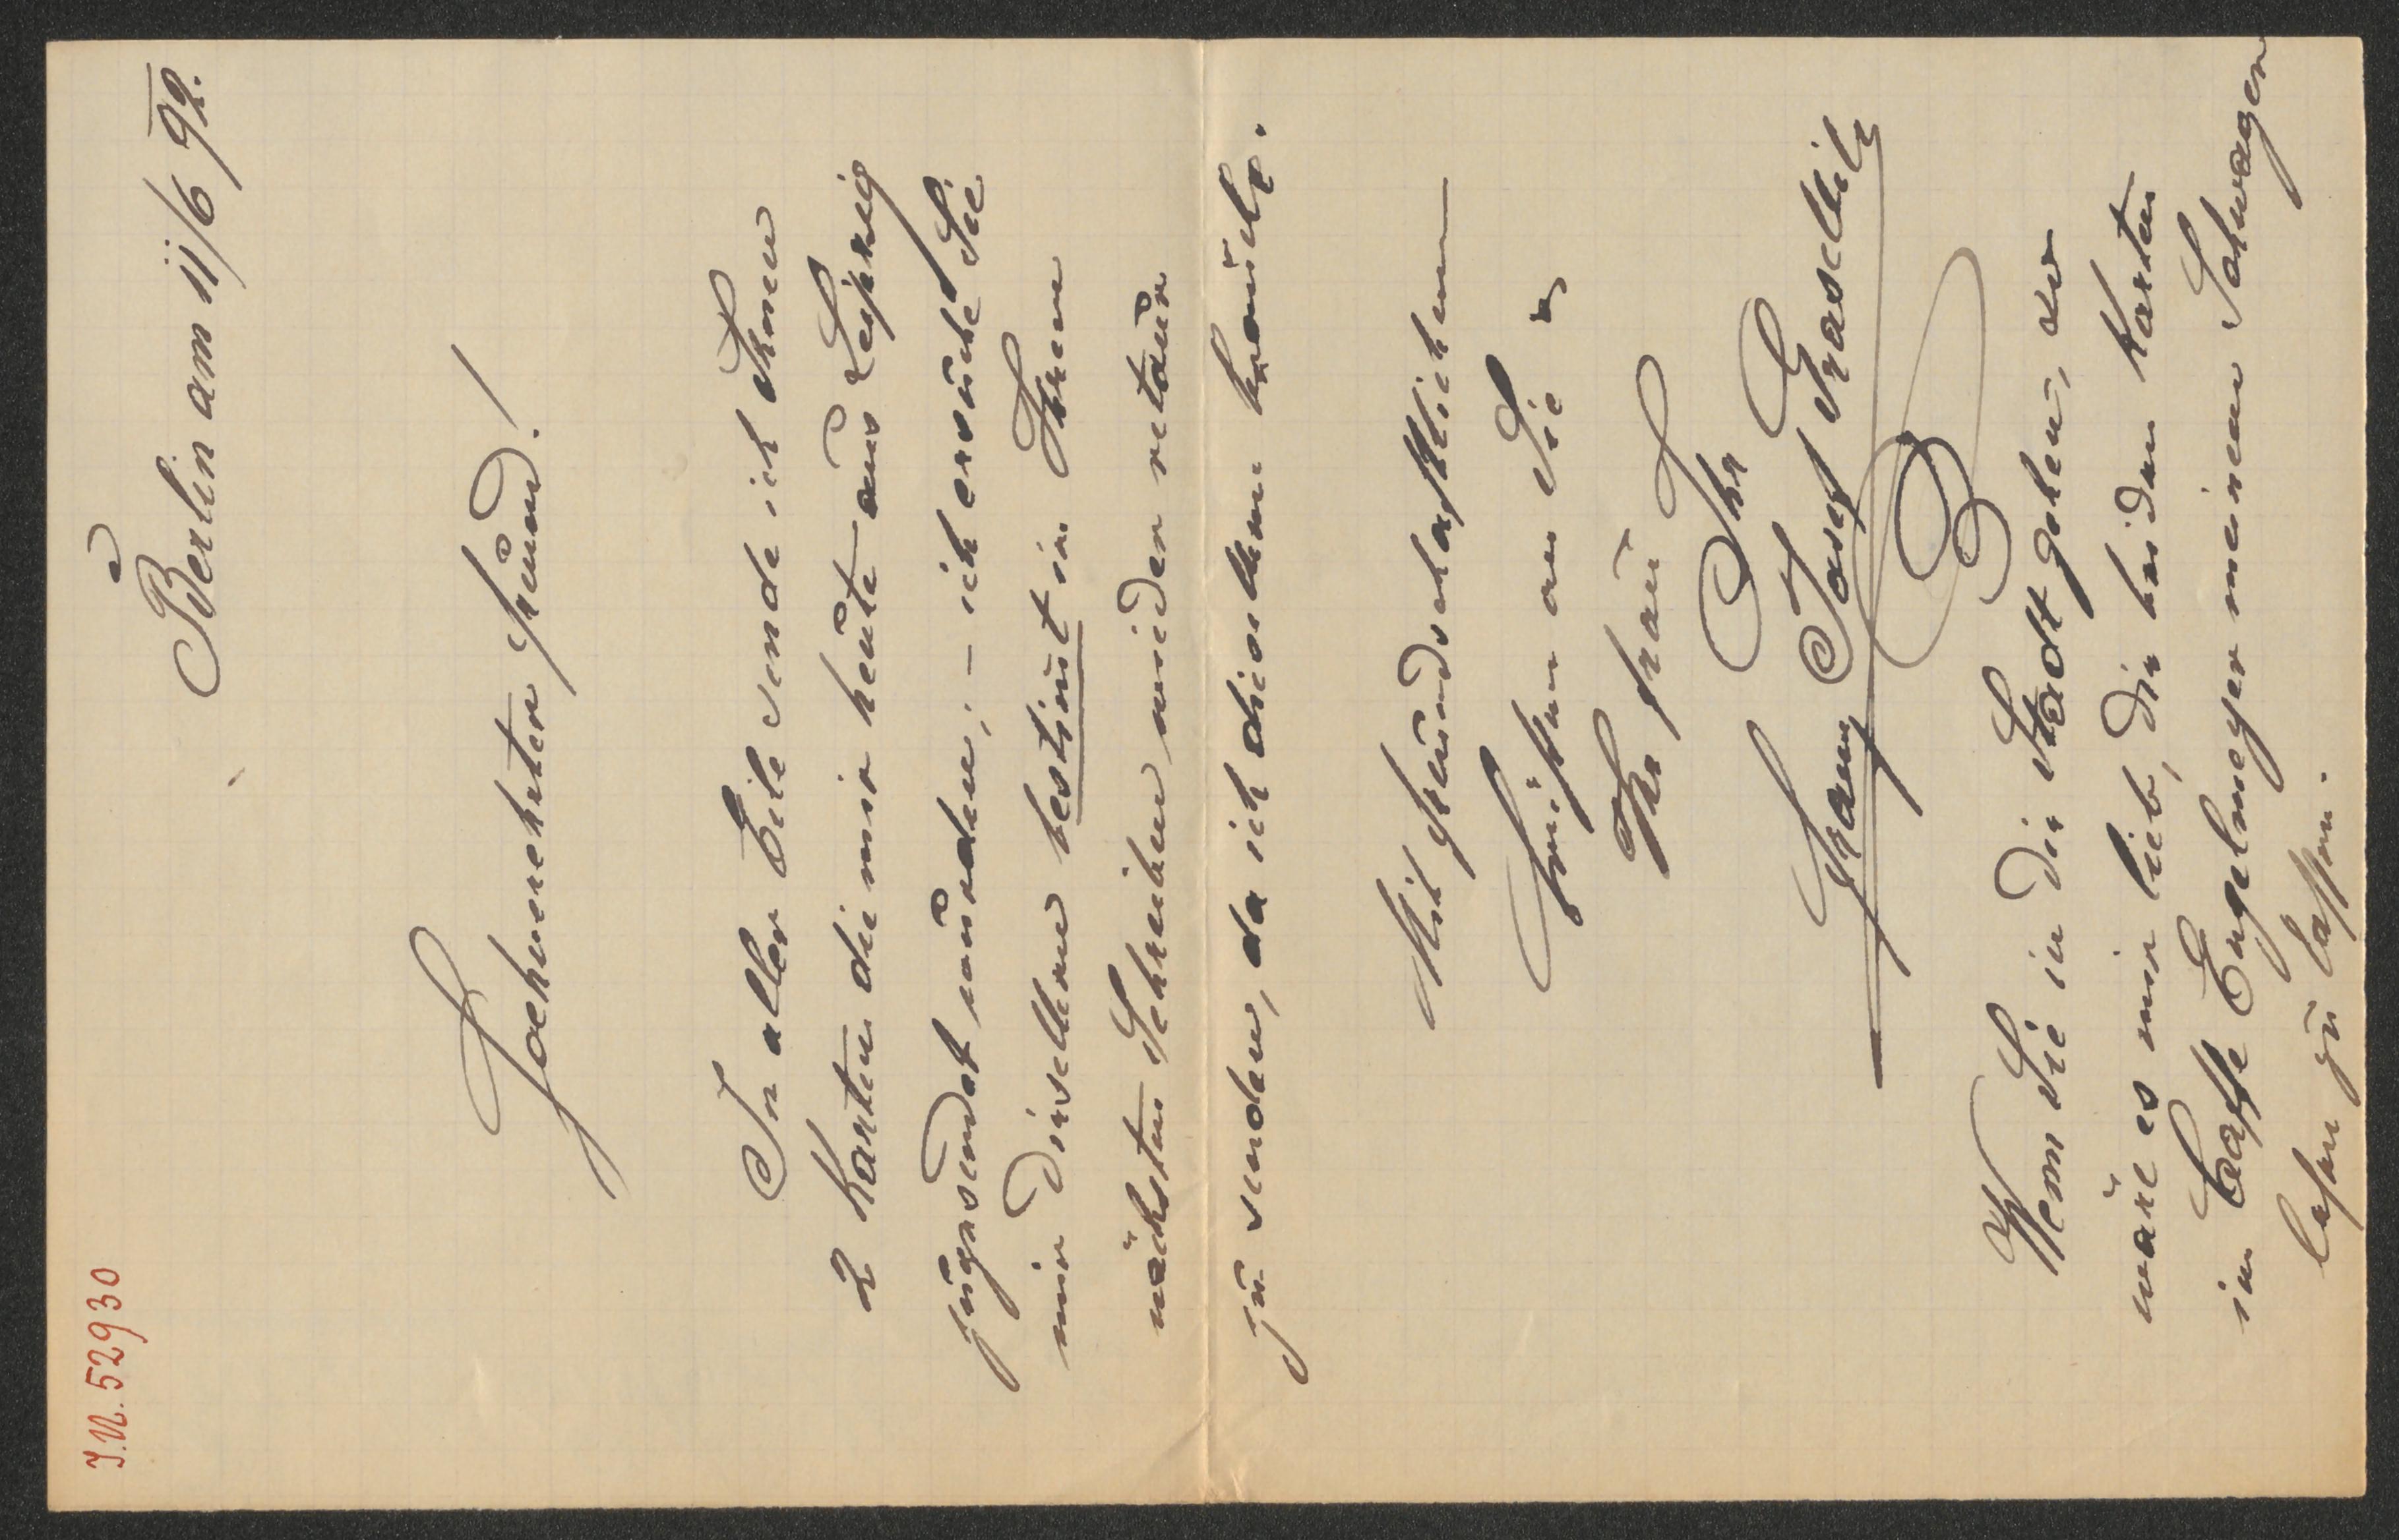 I.N. 52930
Berlin am 11/6 92.
Hochverehrter Freund!
In aller Eile sende ich Ihnen
2 Karten die mir heute aus Leipzig
zugesendet wurden; – ich ersuche Sie
mir dieselben bestimt in Ihrem
nächsten Schreiben wieder retour
zu senden, da ich dieselben brauche.
Mit freundschaftlichen
Grüßen an Sie &
Ihre Frau
Ihr
Franz Josef Graselli
Wenn Sie in die Stadt gehen, so
wäre es mir lieb, die beiden Karten
im Caffe Engelmeyer meinem Schwager
lesen zu lassen.